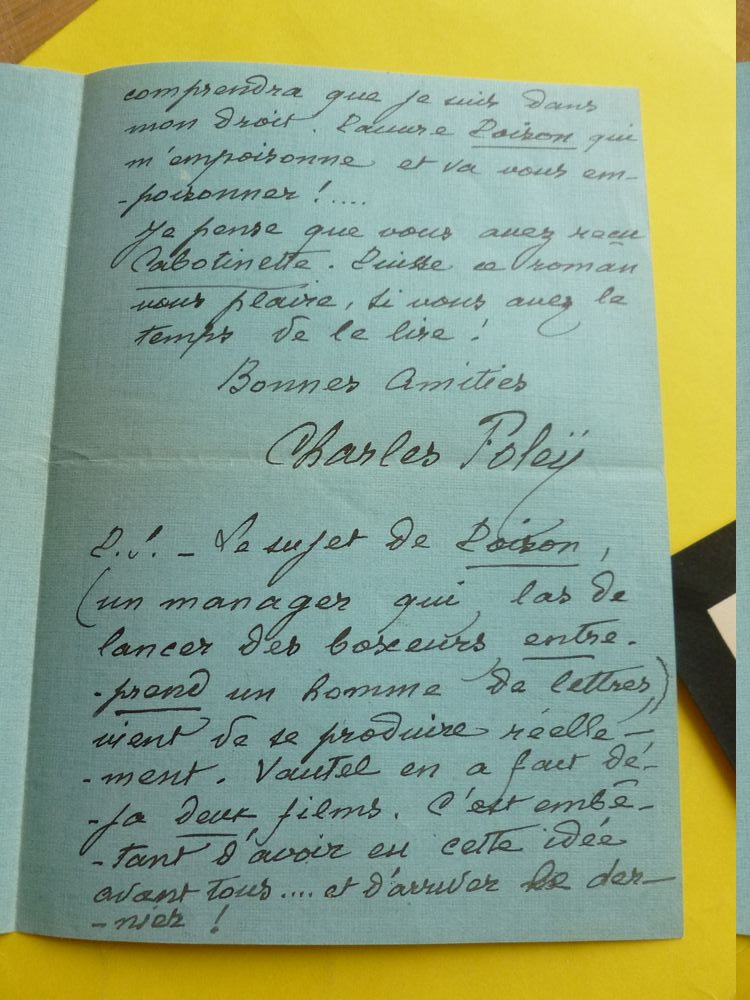 comprendra que je suis dans
mon droit. Pauvre Poison qui
m'empoisonne et va vous em-
-poisonner !....
Je pense que vous avez reçu
Cabotinette. Puisse ce roman
vous plaire, si vous avez le
temps de le lire !
Bonnes Amitiés
Charles Foleÿ
P.S. - Le sujet de Poison,
(un manager qui, las de
lancer des boxeurs, entre-
-prend un homme de lettres)
vient de se produire réelle-
-ment. Vautel en a fait dé-
-jà deux films. C'est embê-
-tant d'avoir eu cette idée
avant tous.... et d'arriver le der-
-nier !